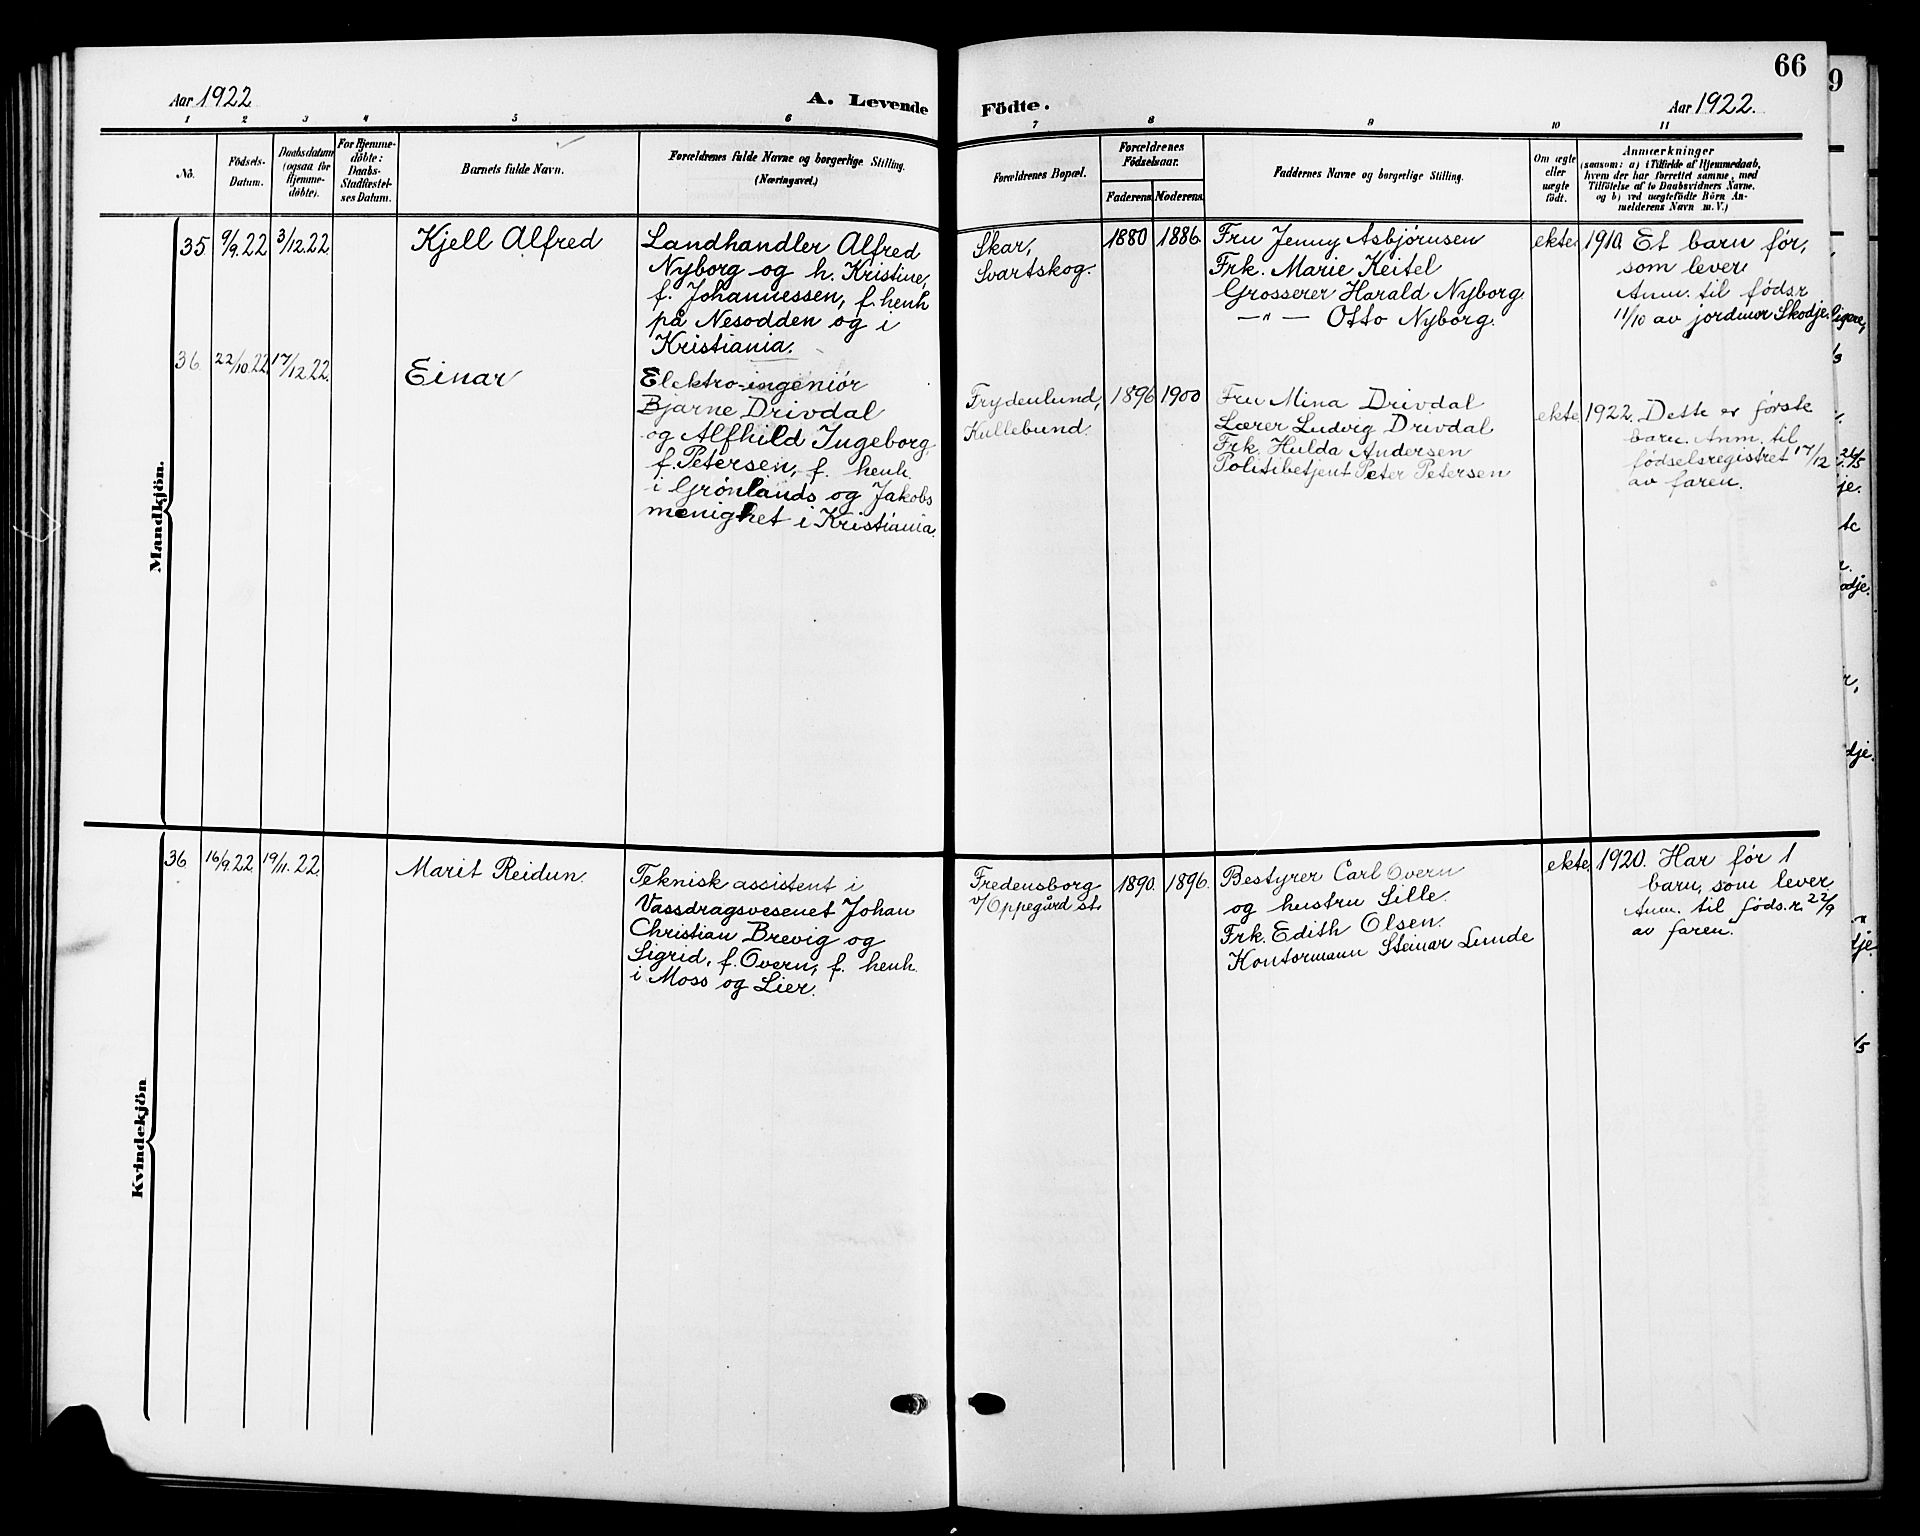 66
Aar 1922
A. Levende
Födte.
Aar 1922.
1 2 3 4 5 6 7 8 9 10 11
No.
Födsels-
Datum.
Daabsdatum
(ogsaa for
Hjemme-
döbte).
For Hjemme-
döbte:
Daabs-
Stadfæstel-
ses Datum.
Barnets fulde Navn.
Forældrenes fulde Navne og borgerlige Stilling.
(Næringsvei.)
Forældrenes Bopæl.
Forældrenes
Födselsaar.
Faderens
Moderens
Faddernes Navne og borgerlige Stilling.
Om ægte
eller
uægte
födt.
Anmærkninger
(saasom: a) i Tilfælde af Hjemmedaab,
hvem der har forrettet samme, med
Tilföielse af to Daabsvidners Navne.
og b) ved uægtefödte Börn An-
melderens Navn m. V.)
Mandkjön.
35
9/9.22
3/12.22.
Kjell Alfred
Landhandler Alfred
Nyborg og h. Kristine,
f. Johannessen, f. henh
på Nesodden og i
Kristiania.
Skar,
Svartskog.
1880
1886.
Fru Jenny Asbjörnsen
Frk. Marie Keitel
Grosserer Harald Nyborg.
—"— Otto Nyborg.
ekte
1910. Et barn før,
som lever.
Anm. til føds.r
11/10 av jordmor Skodje.
36.
22/10.22.
17/12.22.
Einar
Elektro-ingeniör
Bjarne Drivdal
og Alfhild Ingeborg,
f. Petersen, f. henh.
i Grönlands og Jakobs
menighet i Kristiania.
Frydenlund,
Kullebund.
1896
1900
Fru Mina Drivdal
Lærer Ludvig Drivdal
Frk. Hulda Andersen
Politibetjent Peter Petersen
ekte
1922. Dette er første
barn. Anm. til
fødselsregistret 17/12
av faren.
Kvindekjön
36
16/9.22.
19/11.22
Marit Reidun.
Teknisk assistent i
Vassdragsvesenet Johan
Christian Brevig og
Sigrid, f. Overn, f. henh.
i Moss og Lier.
Fredensborg
v/Oppegård st.
1890.
1896.
Bestyrer Carl Overn
og hustru Sille.
Frk. Edith Olsen.
Kontormann Steinar Lunde
ekte,
1920. Har før 1
barn, som lever
Anm. til føds.r. 22/9
av faren.
9